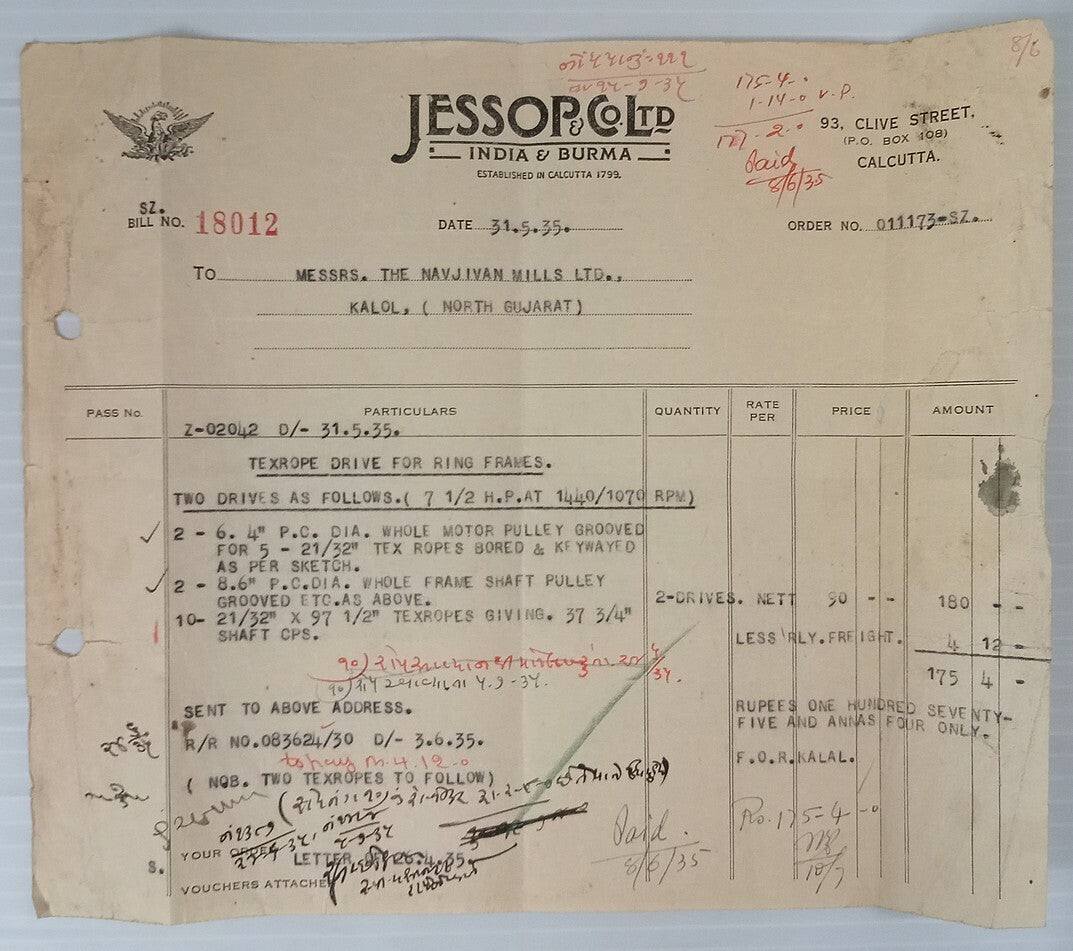 8/6
175-4-0
1-14-0 V.P.
177-2-0
Paid
8/6/35
JESSOP & CO LTD
INDIA & BURMA
ESTABLISHED IN CALCUTTA 1799.
93, CLIVE STREET,
(P.O. BOX 108)
CALCUTTA.
SZ.
BILL NO. 18012
DATE 31.5.35.
ORDER NO. 011173-SZ.
TO MESSRS. THE NAVJIVAN MILLS LTD.,
KALOL, ( NORTH GUJARAT)
PASS No. PARTICULARS QUANTITY RATE PER PRICE AMOUNT
Z-02042 D/- 31.5.35.
TEXROPE DRIVE FOR RING FRAMES.
TWO DRIVES AS FOLLOWS.( 7 1/2 H.P.AT 1440/1070 RPM)
2 - 6. 4" P.C. DIA. WHOLE MOTOR PULLEY GROOVED
FOR 5 - 21/32" TEX ROPES BORED & KEYWAYED
AS PER SKETCH.
2 - 8.6" P.C.DIA. WHOLE FRAME SHAFT PULLEY
GROOVED ETC.AS ABOVE.
2-DRIVES. NETT 90 - - 180 - -
10- 21/32" X 97 1/2" TEXROPES GIVING. 37 3/4"
SHAFT CPS.
LESS RLY.FREIGHT. 4 12 -
175 4 -
SENT TO ABOVE ADDRESS.
RUPEES ONE HUNDRED SEVENTY-
FIVE AND ANNAS FOUR ONLY.
R/R NO.083624/30 D/- 3.6.35.
F.O.R.KALAL.
to pay m.4.12-0
( NOB. TWO TEXROPES TO FOLLOW)
Rs. 175-4-0
Paid.
8/6/35
10/7
YOUR ORDER LETTER D/26.4.35.
S.
VOUCHERS ATTACHED